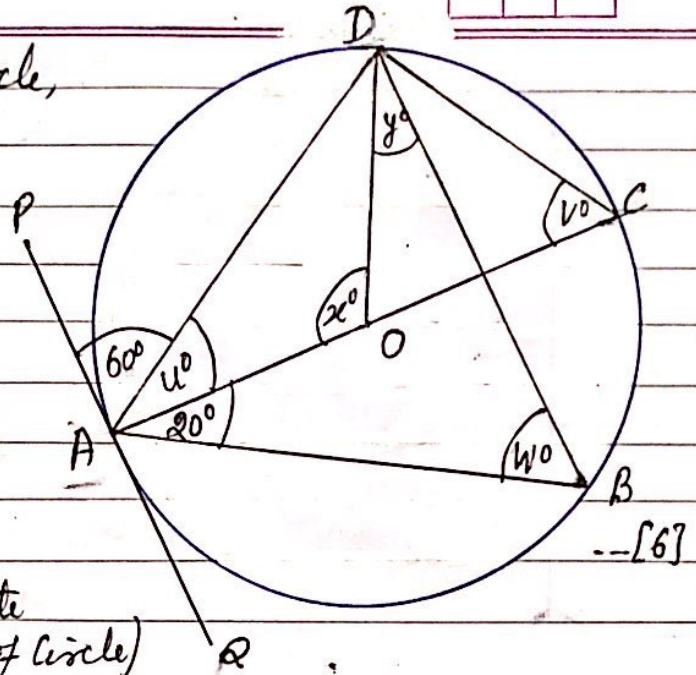 D
cle,
y°
P
V°
C
x°
60°
u°
O
20°
A
W°
B
---[6]
te
of Circle)
Q